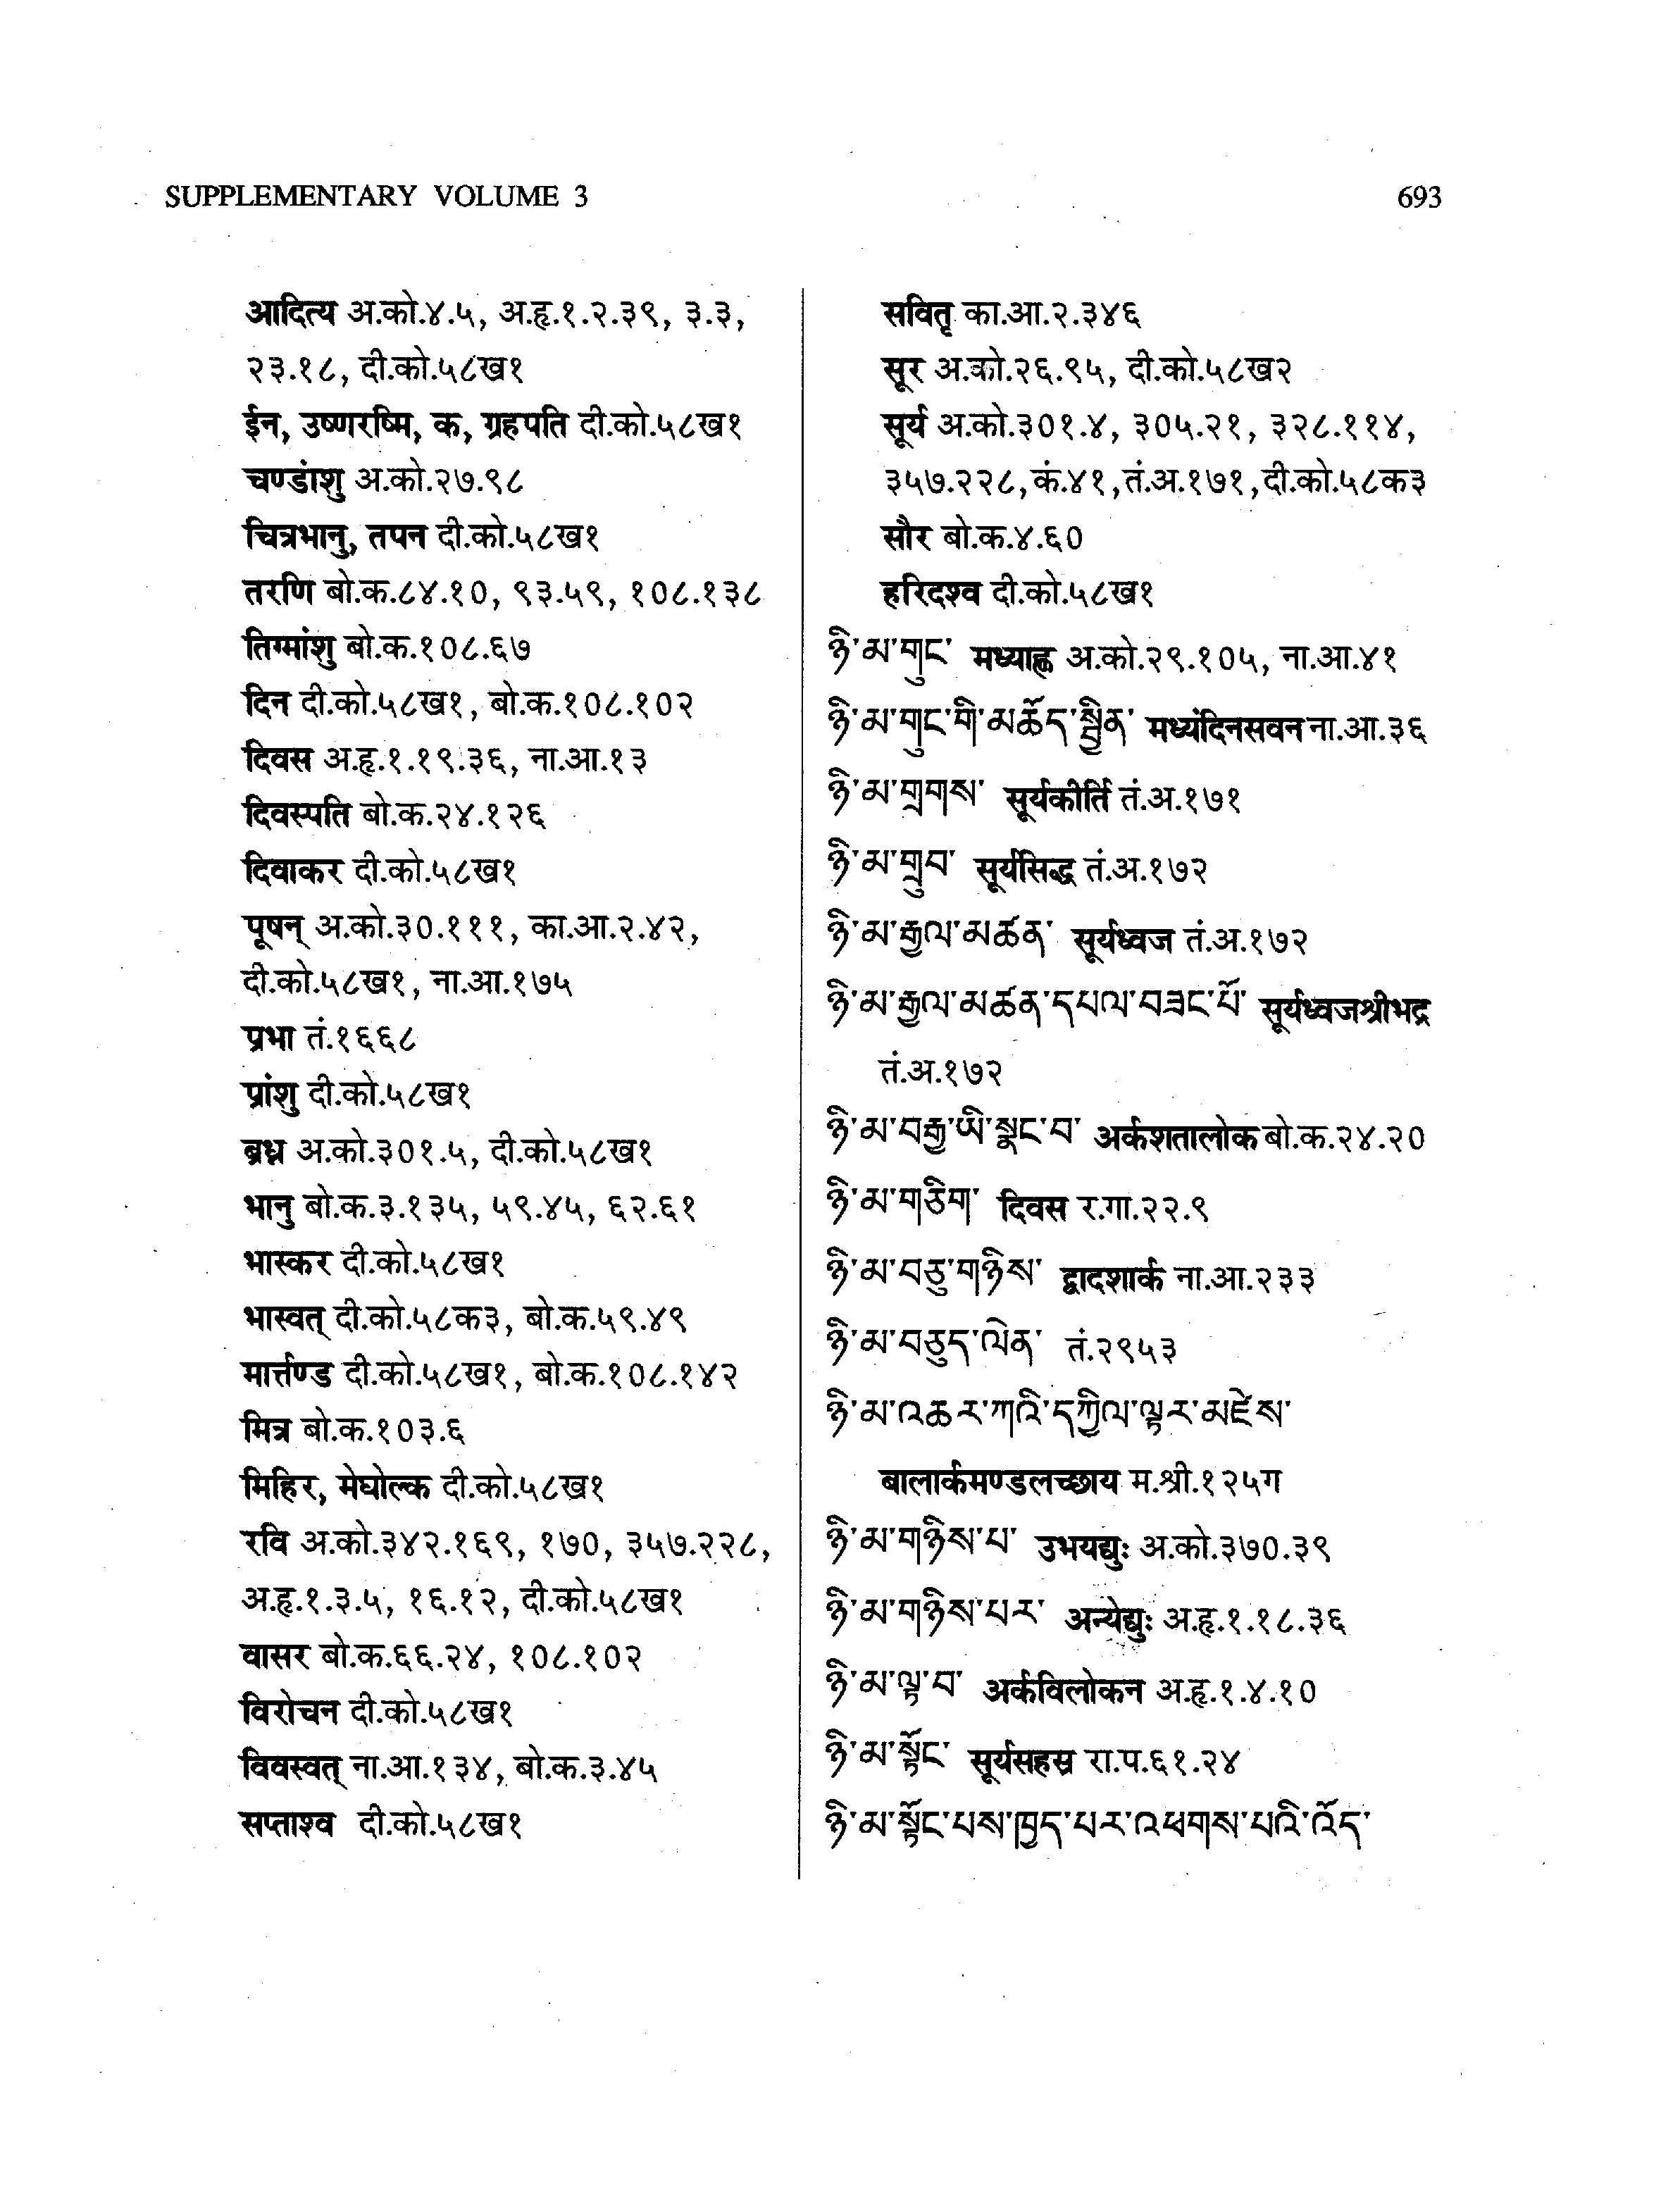 SUPPLEMENTARY VOLUME 3
693
आदित्य अ.को.४.५, अ.हृ.१.२.३९, ३.३,
२३.१८, दी.को.५८ख१
ईन, उष्णरष्मि, क, ग्रहपति दी.को.५८ख१
चण्डांशु अ.को.२७.९८
चित्रभानु, तपन दी.को.५८ख१
तरणि बो.क.८४.१०, ९३.५९, १०८.१३८
तिग्मांशु बो.क.१०८.६७
दिन दी.को.५८ख१, बो.क.१०८.१०२
दिवस अ.हृ.१.१९.३६, ना.आ.१३
दिवस्पति बो.क.२४.१२६
दिवाकर दी.को.५८ख१
पूषन् अ.को.३०.१११, का.आ.२.४२,
दी.को.५८ख१, ना.आ.१७५
प्रभा तं.१६६८
प्रांशु दी.को.५८ख१
ब्रध्न अ.को.३०१.५, दी.को.५८ख१
भानु बो.क.३.१३५, ५९.४५, ६२.६१
भास्कर दी.को.५८ख१
भास्वत् दी.को.५८क३, बो.क.५९.४९
मार्त्तण्ड दी.को.५८ख१, बो.क.१०८.१४२
मित्र बो.क.१०३.६
मिहिर, मेघोल्क दी.को.५८ख१
रवि अ.को.३४२.१६९, १७०, ३५७.२२८,
अ.हृ.१.३.५, १६.१२, दी.को.५८ख१
वासर बो.क.६६.२४, १०८.१०२
विरोचन दी.को.५८ख१
विवस्वत् ना.आ.१३४, बो.क.३.४५
सप्ताश्व दी.को.५८ख१
सवितृ का.आ.२.३४६
सूर अ.को.२६.९५, दी.को.५८ख२
सूर्य अ.को.३०१.४, ३०५.२१, ३२८.११४,
३५७.२२८, कं.४१, तं.अ.१७१, दी.को.५८क३
सौर बो.क.४.६०
हरिदश्व दी.को.५८ख१
ཉི་མ་གུང་ मध्याह्न अ.को.२९.१०५, ना.आ.४१
ཉི་མ་གུང་གི་མཆོད་སྦྱིན་ मध्यंदिनसवन ना.आ.३६
ཉི་མ་གྲགས་ सूर्यकीर्ति तं.अ.१७१
ཉི་མ་གྲུབ་ सूर्यसिद्ध तं.अ.१७२
ཉི་མ་རྒྱལ་མཚན་ सूर्यध्वज तं.अ.१७२
ཉི་མ་རྒྱལ་མཚན་དཔལ་བཟང་པོ་ सूर्यध्वजश्रीभद्र
तं.अ.१७२
ཉི་མ་བརྒྱ་ཡི་སྣང་བ་ अर्कशतालोक बो.क.२४.२०
ཉི་མ་གཅིག་ दिवस र.गा.२२.९
ཉི་མ་བཅུ་གཉིས་ द्वादशार्क ना.आ.२३३
ཉི་མ་བཅུད་ལེན་ तं.२९५३
ཉི་མ་འཆར་ཀའི་དཀྱིལ་ལྟར་མཛེས་
बालार्कमण्डलच्छाय म.श्री.१२५ग
ཉི་མ་གཉིས་པ་ उभयद्युः अ.को.३७०.३९
ཉི་མ་གཉིས་པར་ अन्येद्युः अ.हृ.१.१८.३६
ཉི་མ་ལྟ་བ་ अर्कविलोकन अ.हृ.१.४.१०
ཉི་མ་སྟོང་ सूर्यसहस्र रा.प.६१.२४
ཉི་མ་སྟོང་པས་ཁྱད་པར་འཕགས་པའི་འོད་